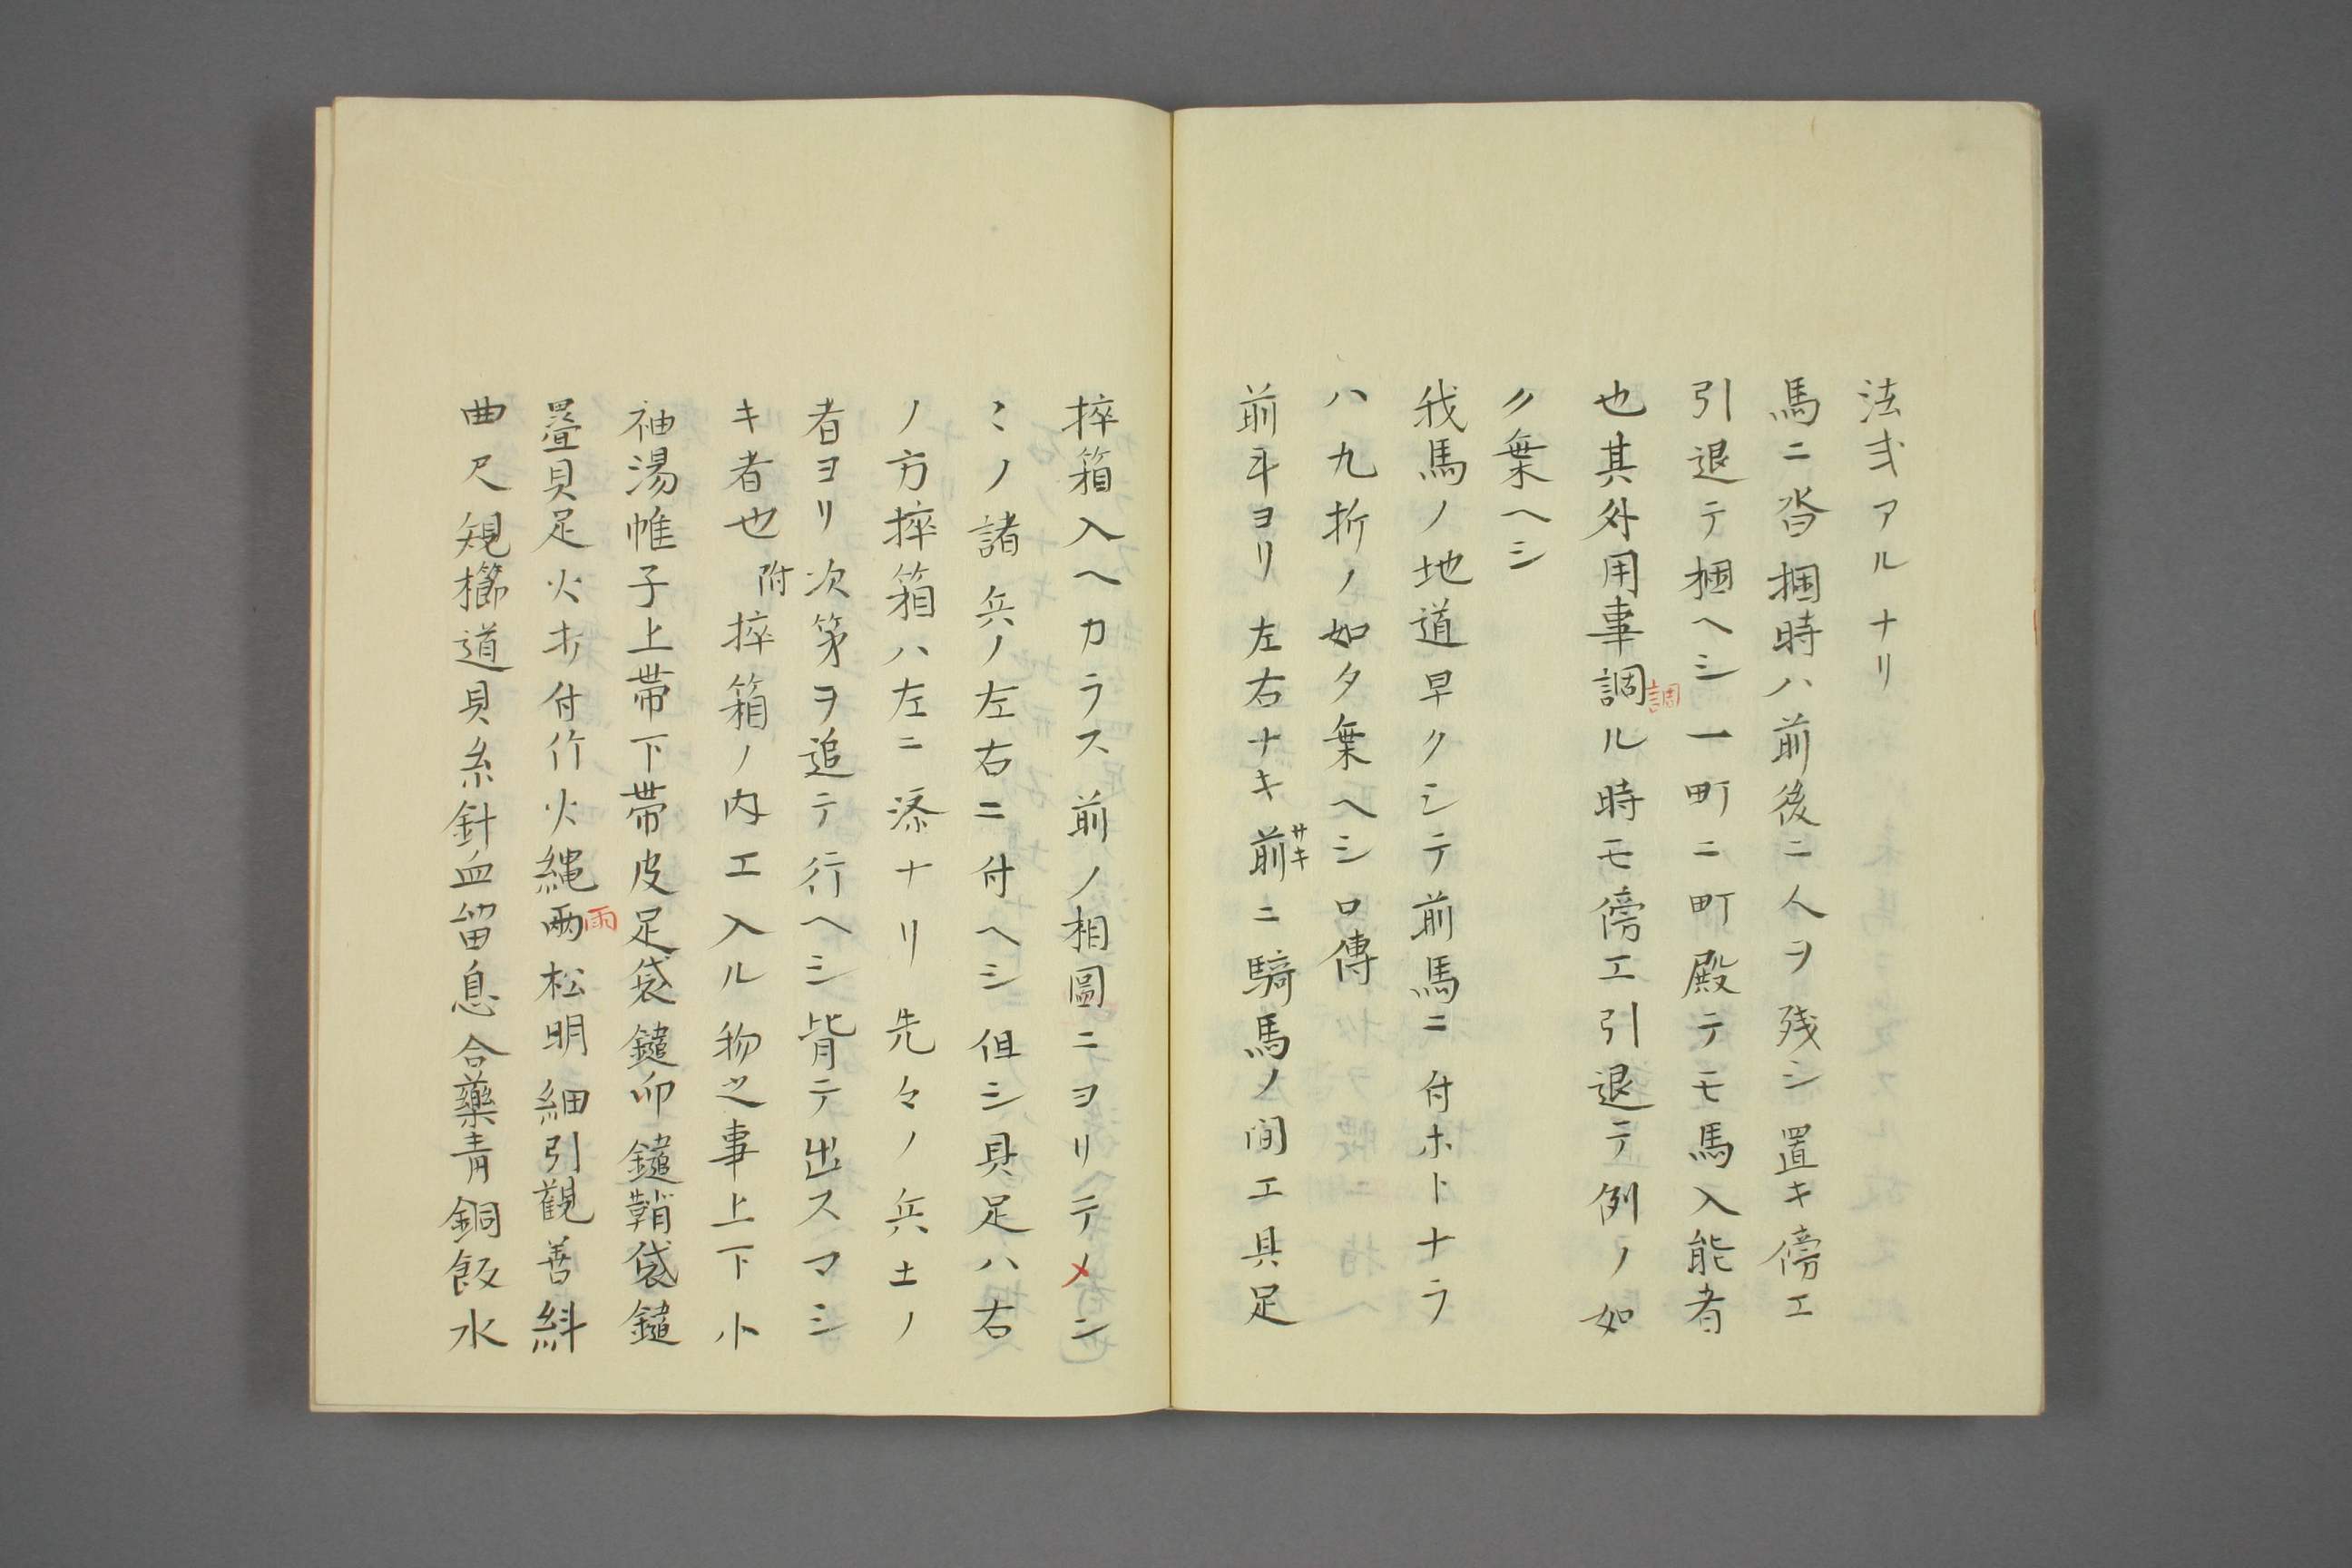 法弐アルナリ
馬ニ沓掴時ハ前後ニ人ヲ残シ置キ傍エ
引退テ掴ヘシ一町ニ町殿テモ馬入能者
也其外用事調ル時モ傍エ引退テ例ノ如
調
ク乗ヘシ
我馬ノ地道早クシテ前馬ニ付ホトナラ
ハ九折ノ如タ乗ヘシ口傳
前斗ヨリ左右ナキ前ニ騎馬ノ間エ具足
サキ
捽箱入ヘカラス前ノ相圖ニヨリテメン
〻ノ諸兵ノ左右ニ付ヘシ但シ具足ハ右
ノ方捽箱ハ左ニ添ナリ先々ノ兵士ノ
者ヨリ次第ヲ追テ行ヘシ背テ出スマシ
キ者也附捽箱ノ内エ入ル物之事上下小
袖湯帷子上帯下帯皮足袋鑓印鑓鞘袋鑓
畳貝足火打付竹火縄両松明細引観善斜
雨
曲尺規櫛道具糸針血留息合藥青銅飯水